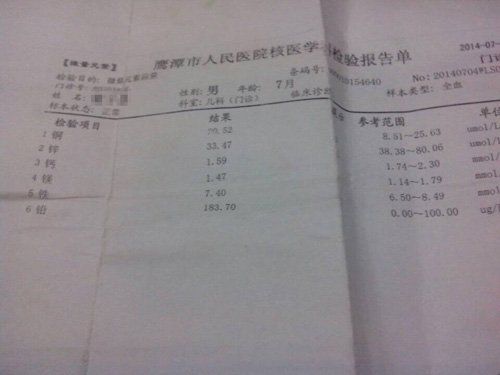 鹰潭市人民医院核医学 检验报告单
【微量元素】
2014-07-
检验目的: 微量元素 条码号: 0015154640 门诊
门诊号: No: 20140704WLS0
姓名: 性别: 男 年龄: 7月 样本类型: 全血
样本状态: 正常 科室: 儿科(门诊) 临床诊
检验项目 结果 参考范围 单位
1 铜 20.52 8.51~25.63 umol/L
2 锌 33.47 38.38~80.06 umol/
3 钙 1.59 1.74~2.30 mmol/
4 镁 1.47 1.14~1.79 mmol/
5 铁 7.40 6.50~8.49 mmol/
6 铅 183.70 0.00~100.00 ug/